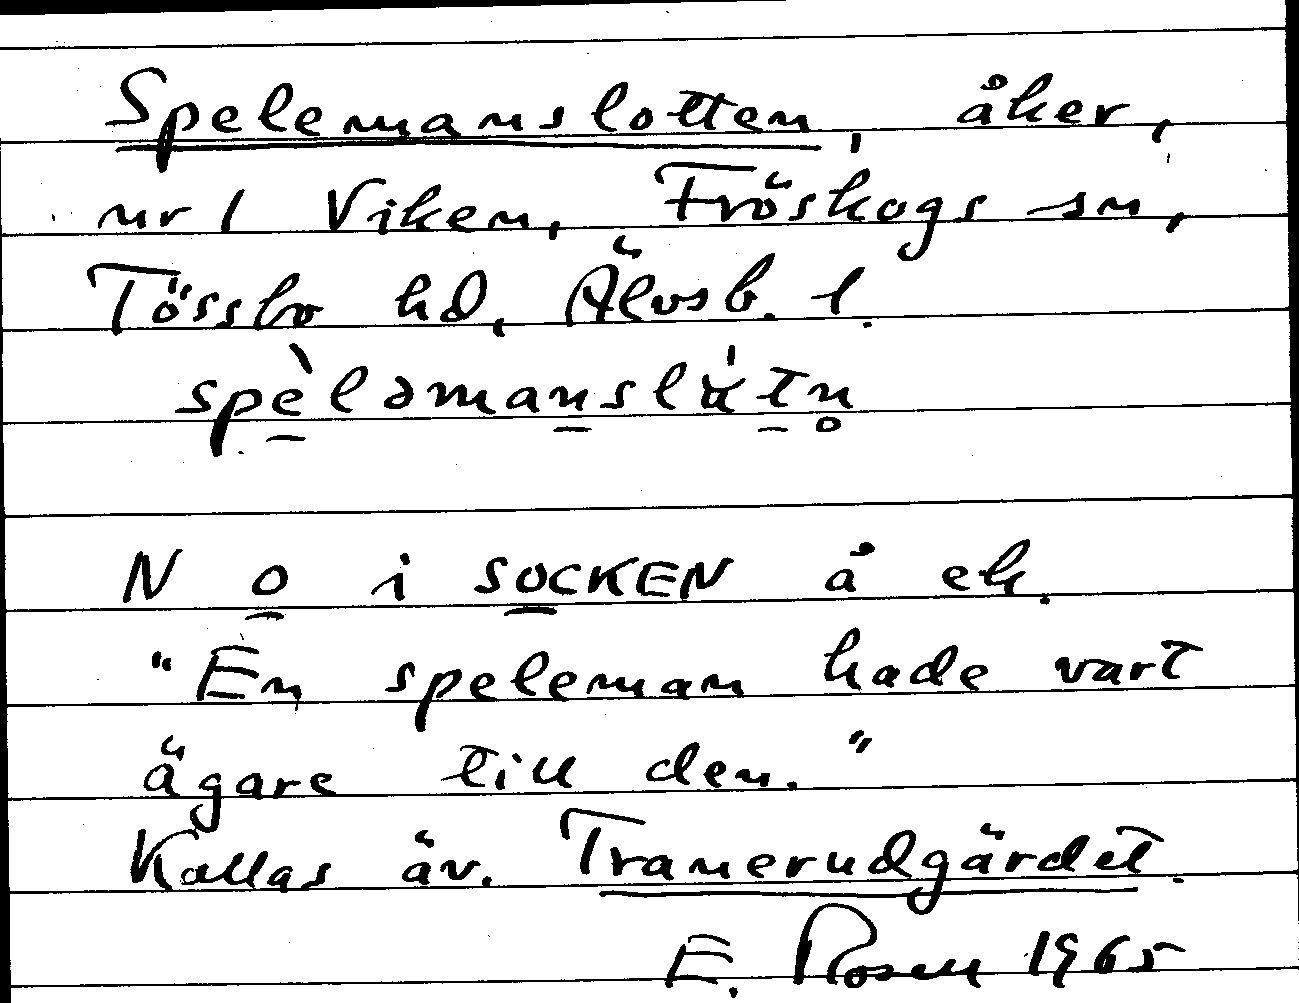 Spelemanslotten, åker,
nr 1 Viken, Fröskogs sn,
Tössbo hd, Älvsb. l.
spè̲ləman̲slα̈́t̲n̥
N o̲ i SO̲CKEN å ek.
"En speleman hade vart
ägare till den."
Kallas äv. Tranerudgärdet.
E. Rosen 1965